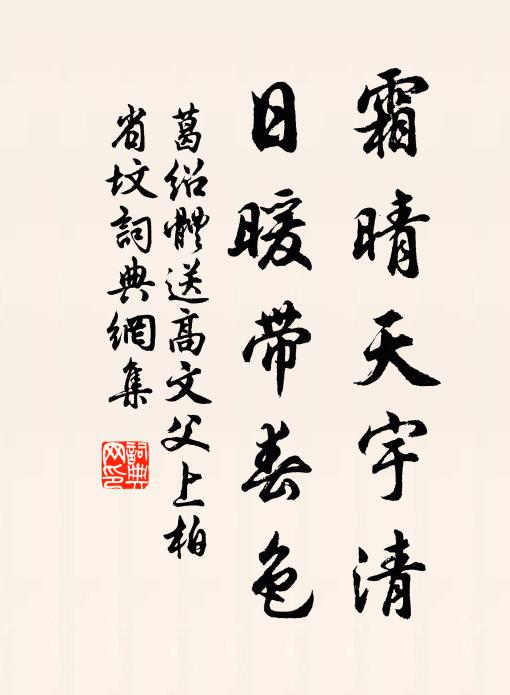 霜晴天宇清
日暖带春色
葛绍體送高文父上柏
省坟詞典網集
詞典网印